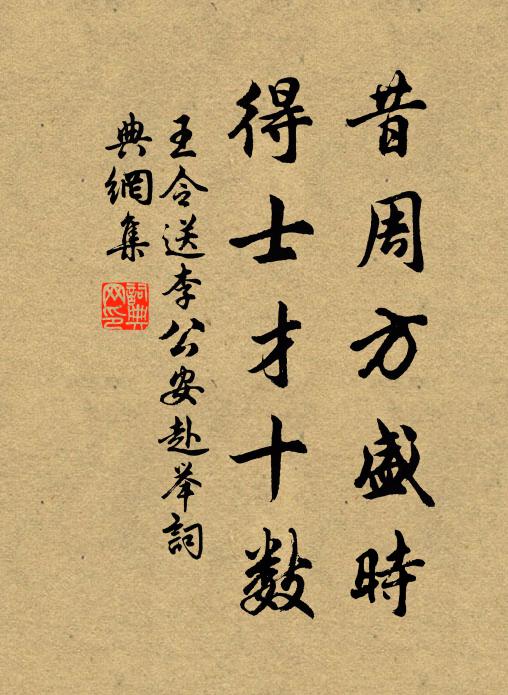 昔周方盛時
得士才十数
王令送李公安赴举詞
典網集
詞典
网印